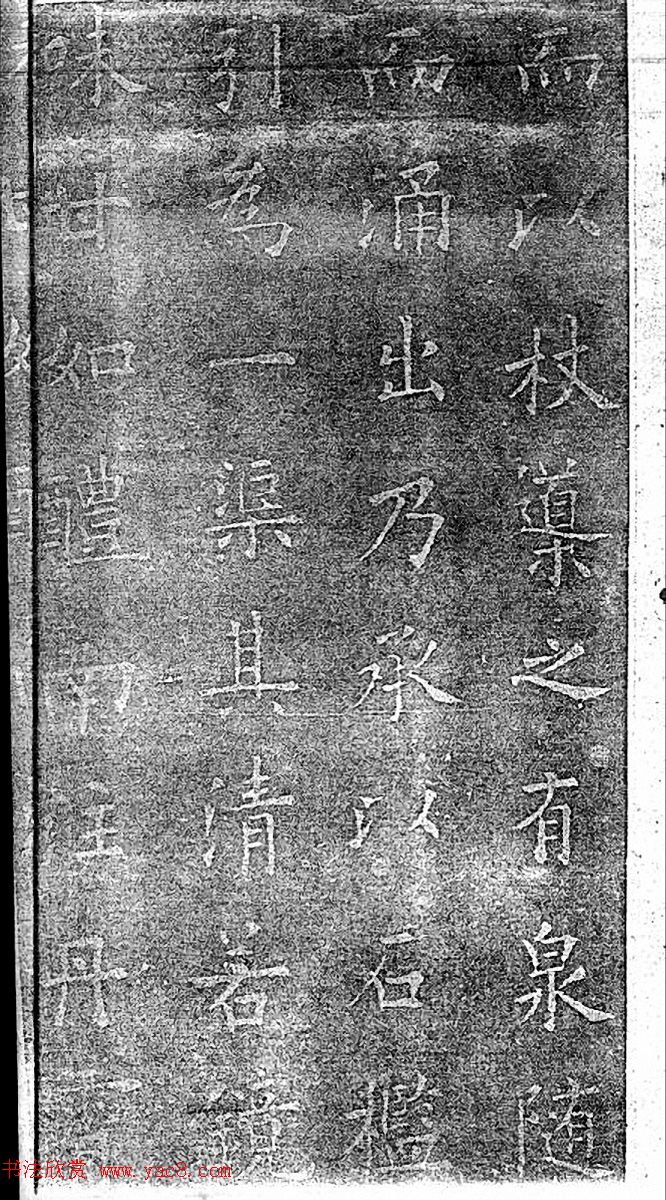 而以杖導之有泉随
而涌出乃承以石檻
引為一渠其清若鏡
味甘如醴南注丹霄
书法欣赏 www.yac8.com